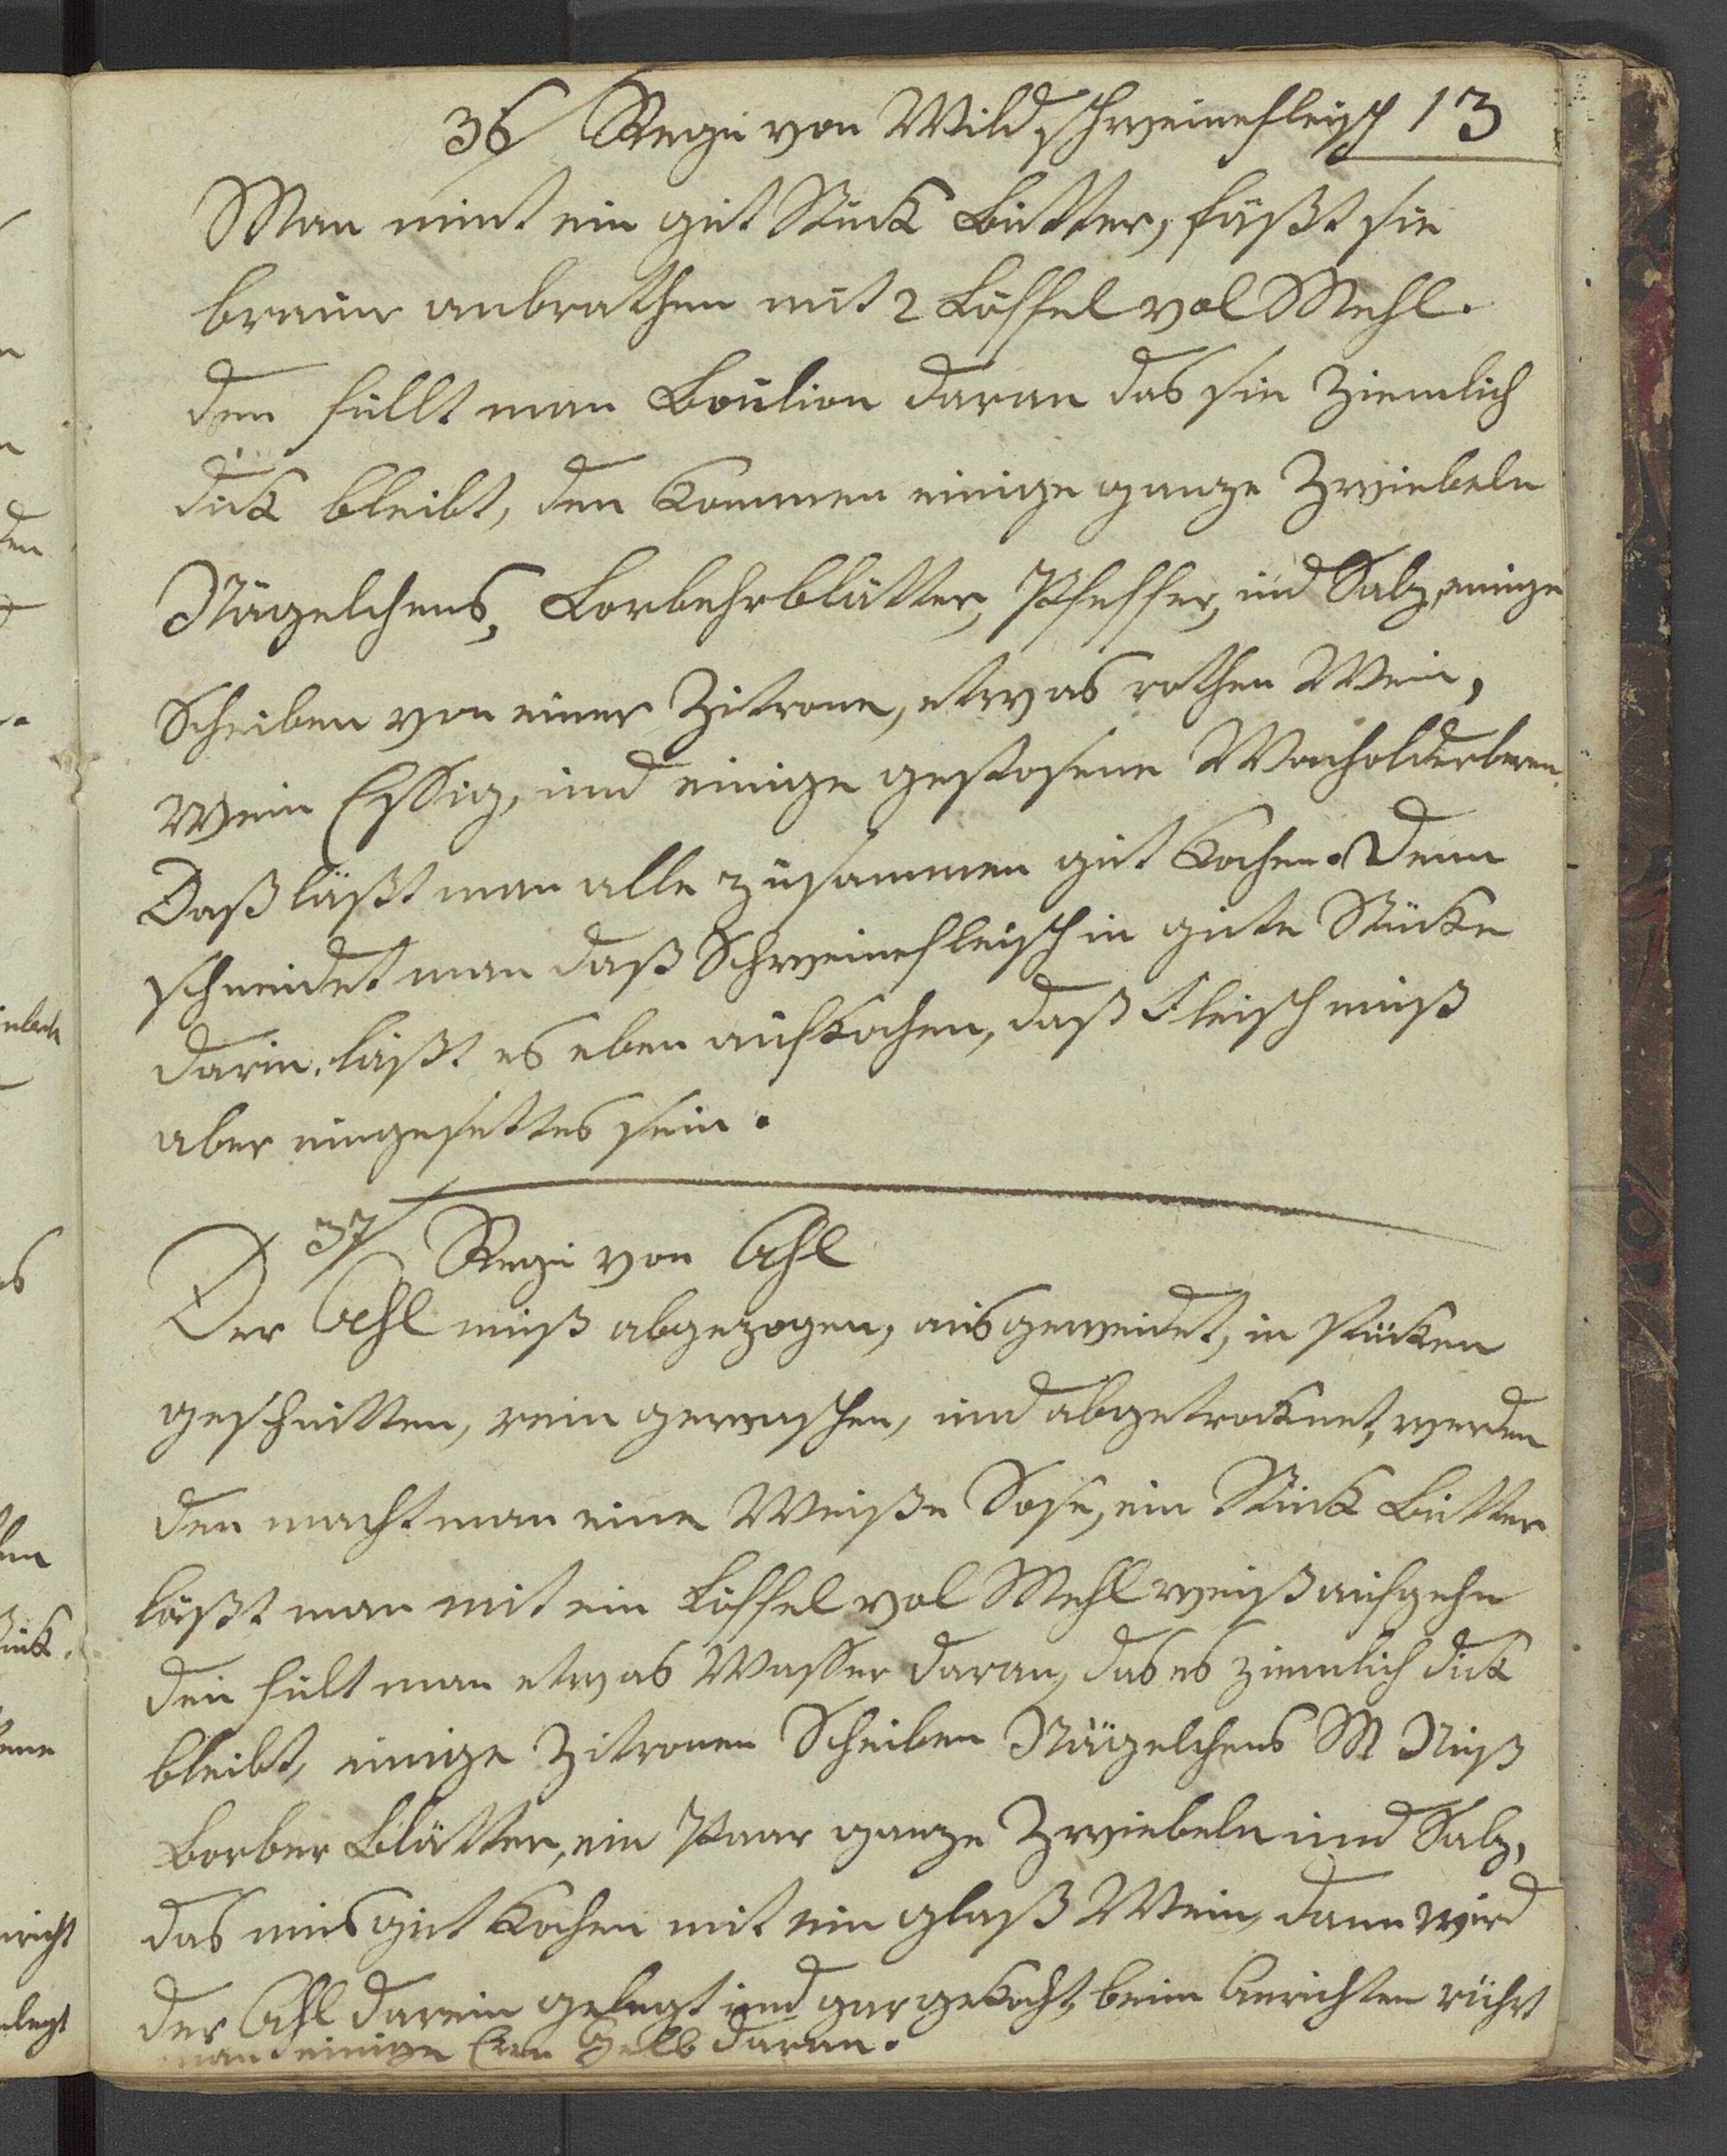 36/ Regu von Wildschweinefleisch 13
Man nimt ein gut Stück Butter, läßt sie
braun anbrathen mit 2 Löffel vol Mehl.
den füllt man Boulion daran das sie Ziemlich
dick bleibt, den kommen einige ganze Zwiebeln
Nägelchens, Lorbehrblätter, Pfeffer, und Salz, einige
Scheiben von einer Zitrone, etwas rothen Wein,
Wein Essig, und einige gestosene Wacholderberen.
Daß läßt man alle zusammen gut kochen. Denn
schneidet man daß Schweinefleisch in gute Stücke
darin. läßt es eben aufkochen, daß Fleisch muß
aber sein.
37/ Regu von Ahl
Der Ahl muß abgezogen, ausgeweidet, in stücken
geschnitten, rein gewaschen, und abgetrocknet, werden
den macht man eine Weiße Sose, ein Stück Butter
läßt man mit ein Löffel vol Mehl weiß aufgehn
den fült man etwas Wasser daran, das es ziemlich dick
bleibt, einige Zitronen Scheiben Nägelchens M Nuß
Lorber Blätter, ein Paar ganze Zwiebeln und Salz,
das mus gut kochen mit ein glaß Wein, dann wird
der Ahl darein gelegt und gar gekocht, beim Anrichten rührt
man einige Eier Gelb daran.